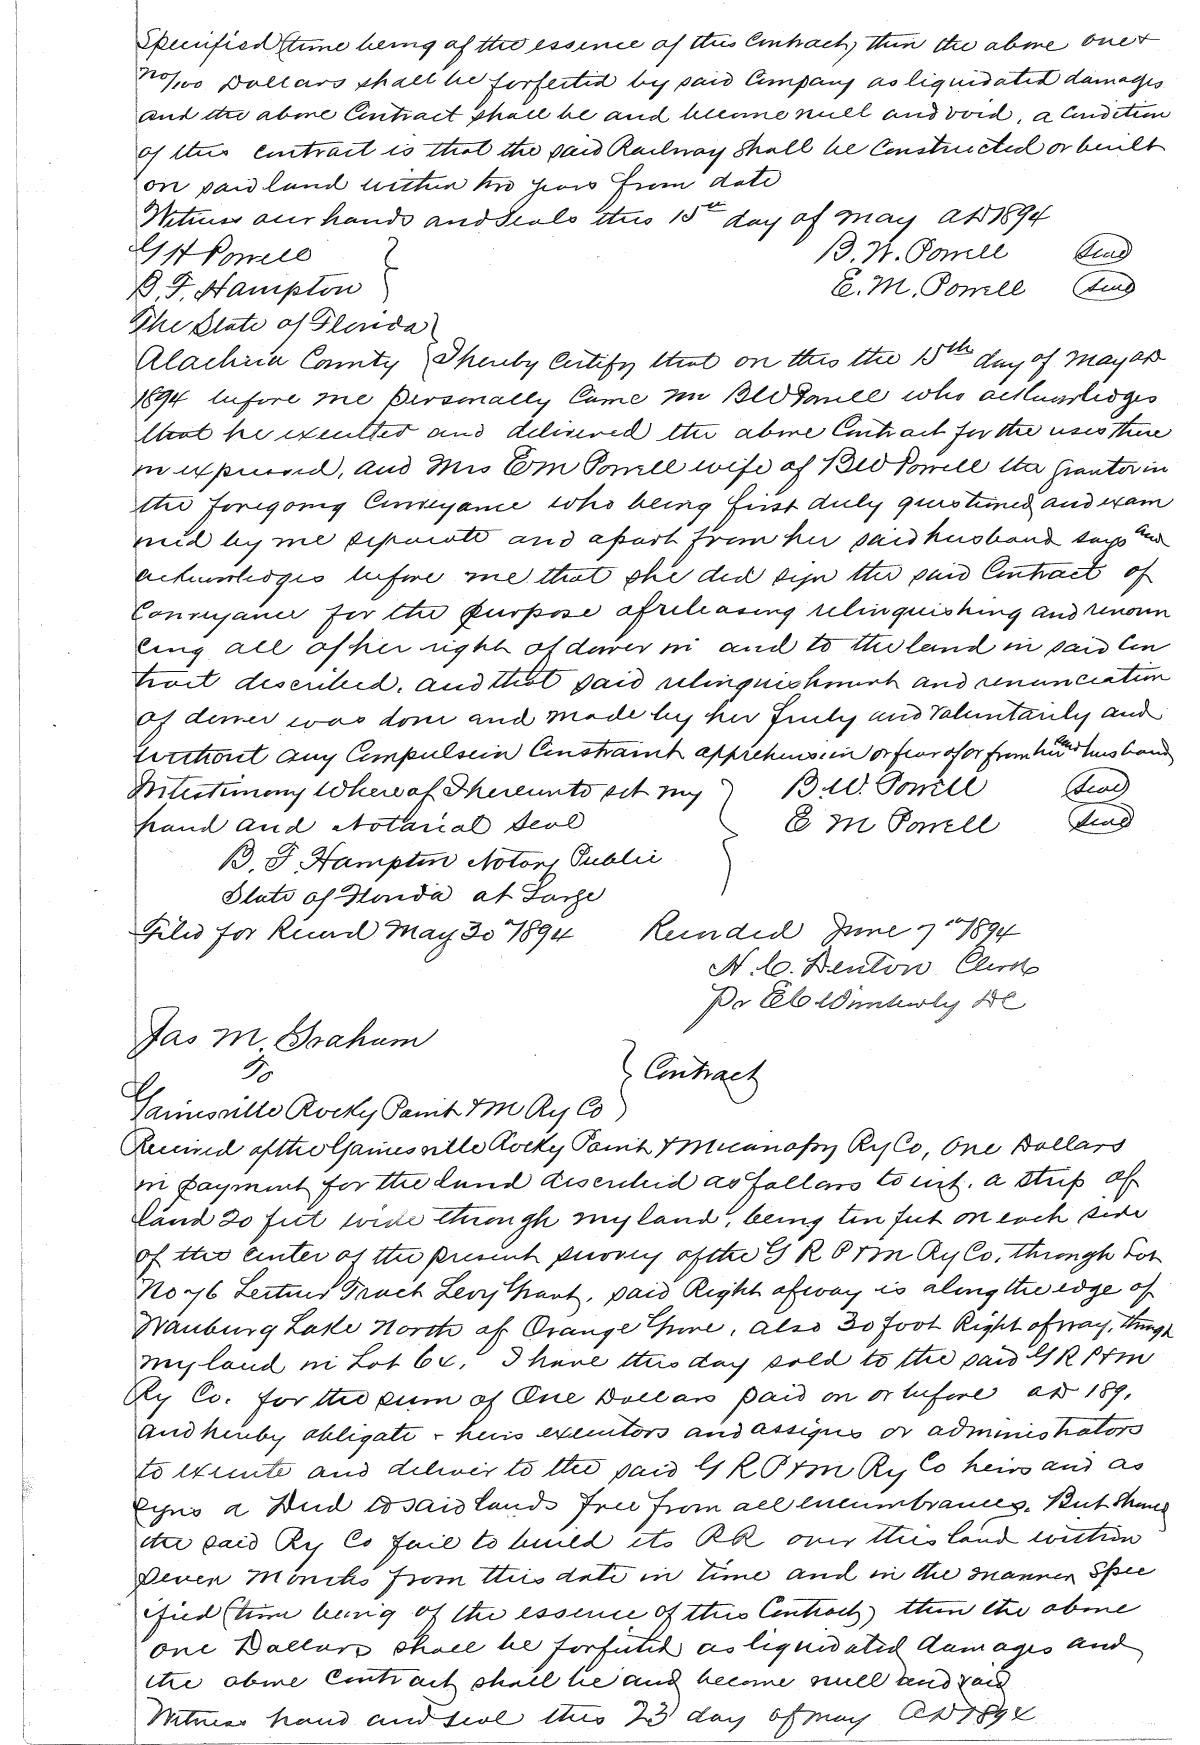 Specified (time being of the essence of this Contract) then the above one &
no/100 Dollars shall be forfeited by said Company as liquidated damages
and the above Contract shall be and become null and void, a Condition
of this contract is that the said Railway Shall be Constructed or built
on said land within two years from date
Witness our hands and Seals this 15th day of May AD 1894
G H Powell } B. W. Powell (Seal)
B. F. Hampton } E. M. Powell (Seal)
The State of Florida }
Alachua County { I hereby Certify that on this the 15th day of May AD
1894 before me personally Came B W Powell who acknowledges
that he executed and delivered the above Contract for the uses there
in expressed, and Mrs E M Powell wife of B W Powell the Grantor in
the foregoing Conveyance who being first duly questioned and exam
ined by me separate and apart from her said husband says and
acknowledges before me that she did sign the said Contract of
Conveyance for the purpose of releasing relinquishing and renoun
cing all of her right of dower in and to the land in said Con
tract described, and that said relinquishment and renunciation
of dower was done and made by her freely and voluntarily and
without any Compulsion Constraint apprehension or fear of or from her said husband
In testimony Whereof I hereunto set my } B. W. Powell (Seal)
hand and Notarial Seal E M Powell (Seal)
B. F. Hampton Notary Public
State of Florida at Large
Filed for Record May 30th 1894 Recorded June 7th 1894
H. C. Denton Clerk
Pr E C Wimberly DC
Jas M. Graham
To } Contract
Gainesville Rocky Point & M Ry Co
Received of the Gainesville Rocky Point & Micanopy Ry Co, One Dollars
in payment for the land described as follows to wit. a strip of
land 20 feet wide through my land, being ten feet on each side
of the center of the present survey of the G R P & M Ry Co, through Lot
No 76 Tract Levy Grant, said Right of way is along the edge of
Wauburg Lake North of Orange Grove, also 30 foot Right of way, through
my land in Lot 64. I have this day sold to the said G R P & M
Ry Co. for the sum of One Dollars paid on or before AD 189,
and hereby obligate - heirs executors and assigns or administrators
to execute and deliver to the said G R P & M Ry Co heirs and as
signs a Deed to said lands free from all encumbrances. But should
the said Ry Co fail to build its RR over this land within
Seven Months from this date in time and in the manner Spec
ified (time being of the essence of this Contract) then the above
one Dollars shall be forfeited as liquidated damages and
the above Contract shall be and become null and void
Witness hand and seal this 23 day of May AD 1894